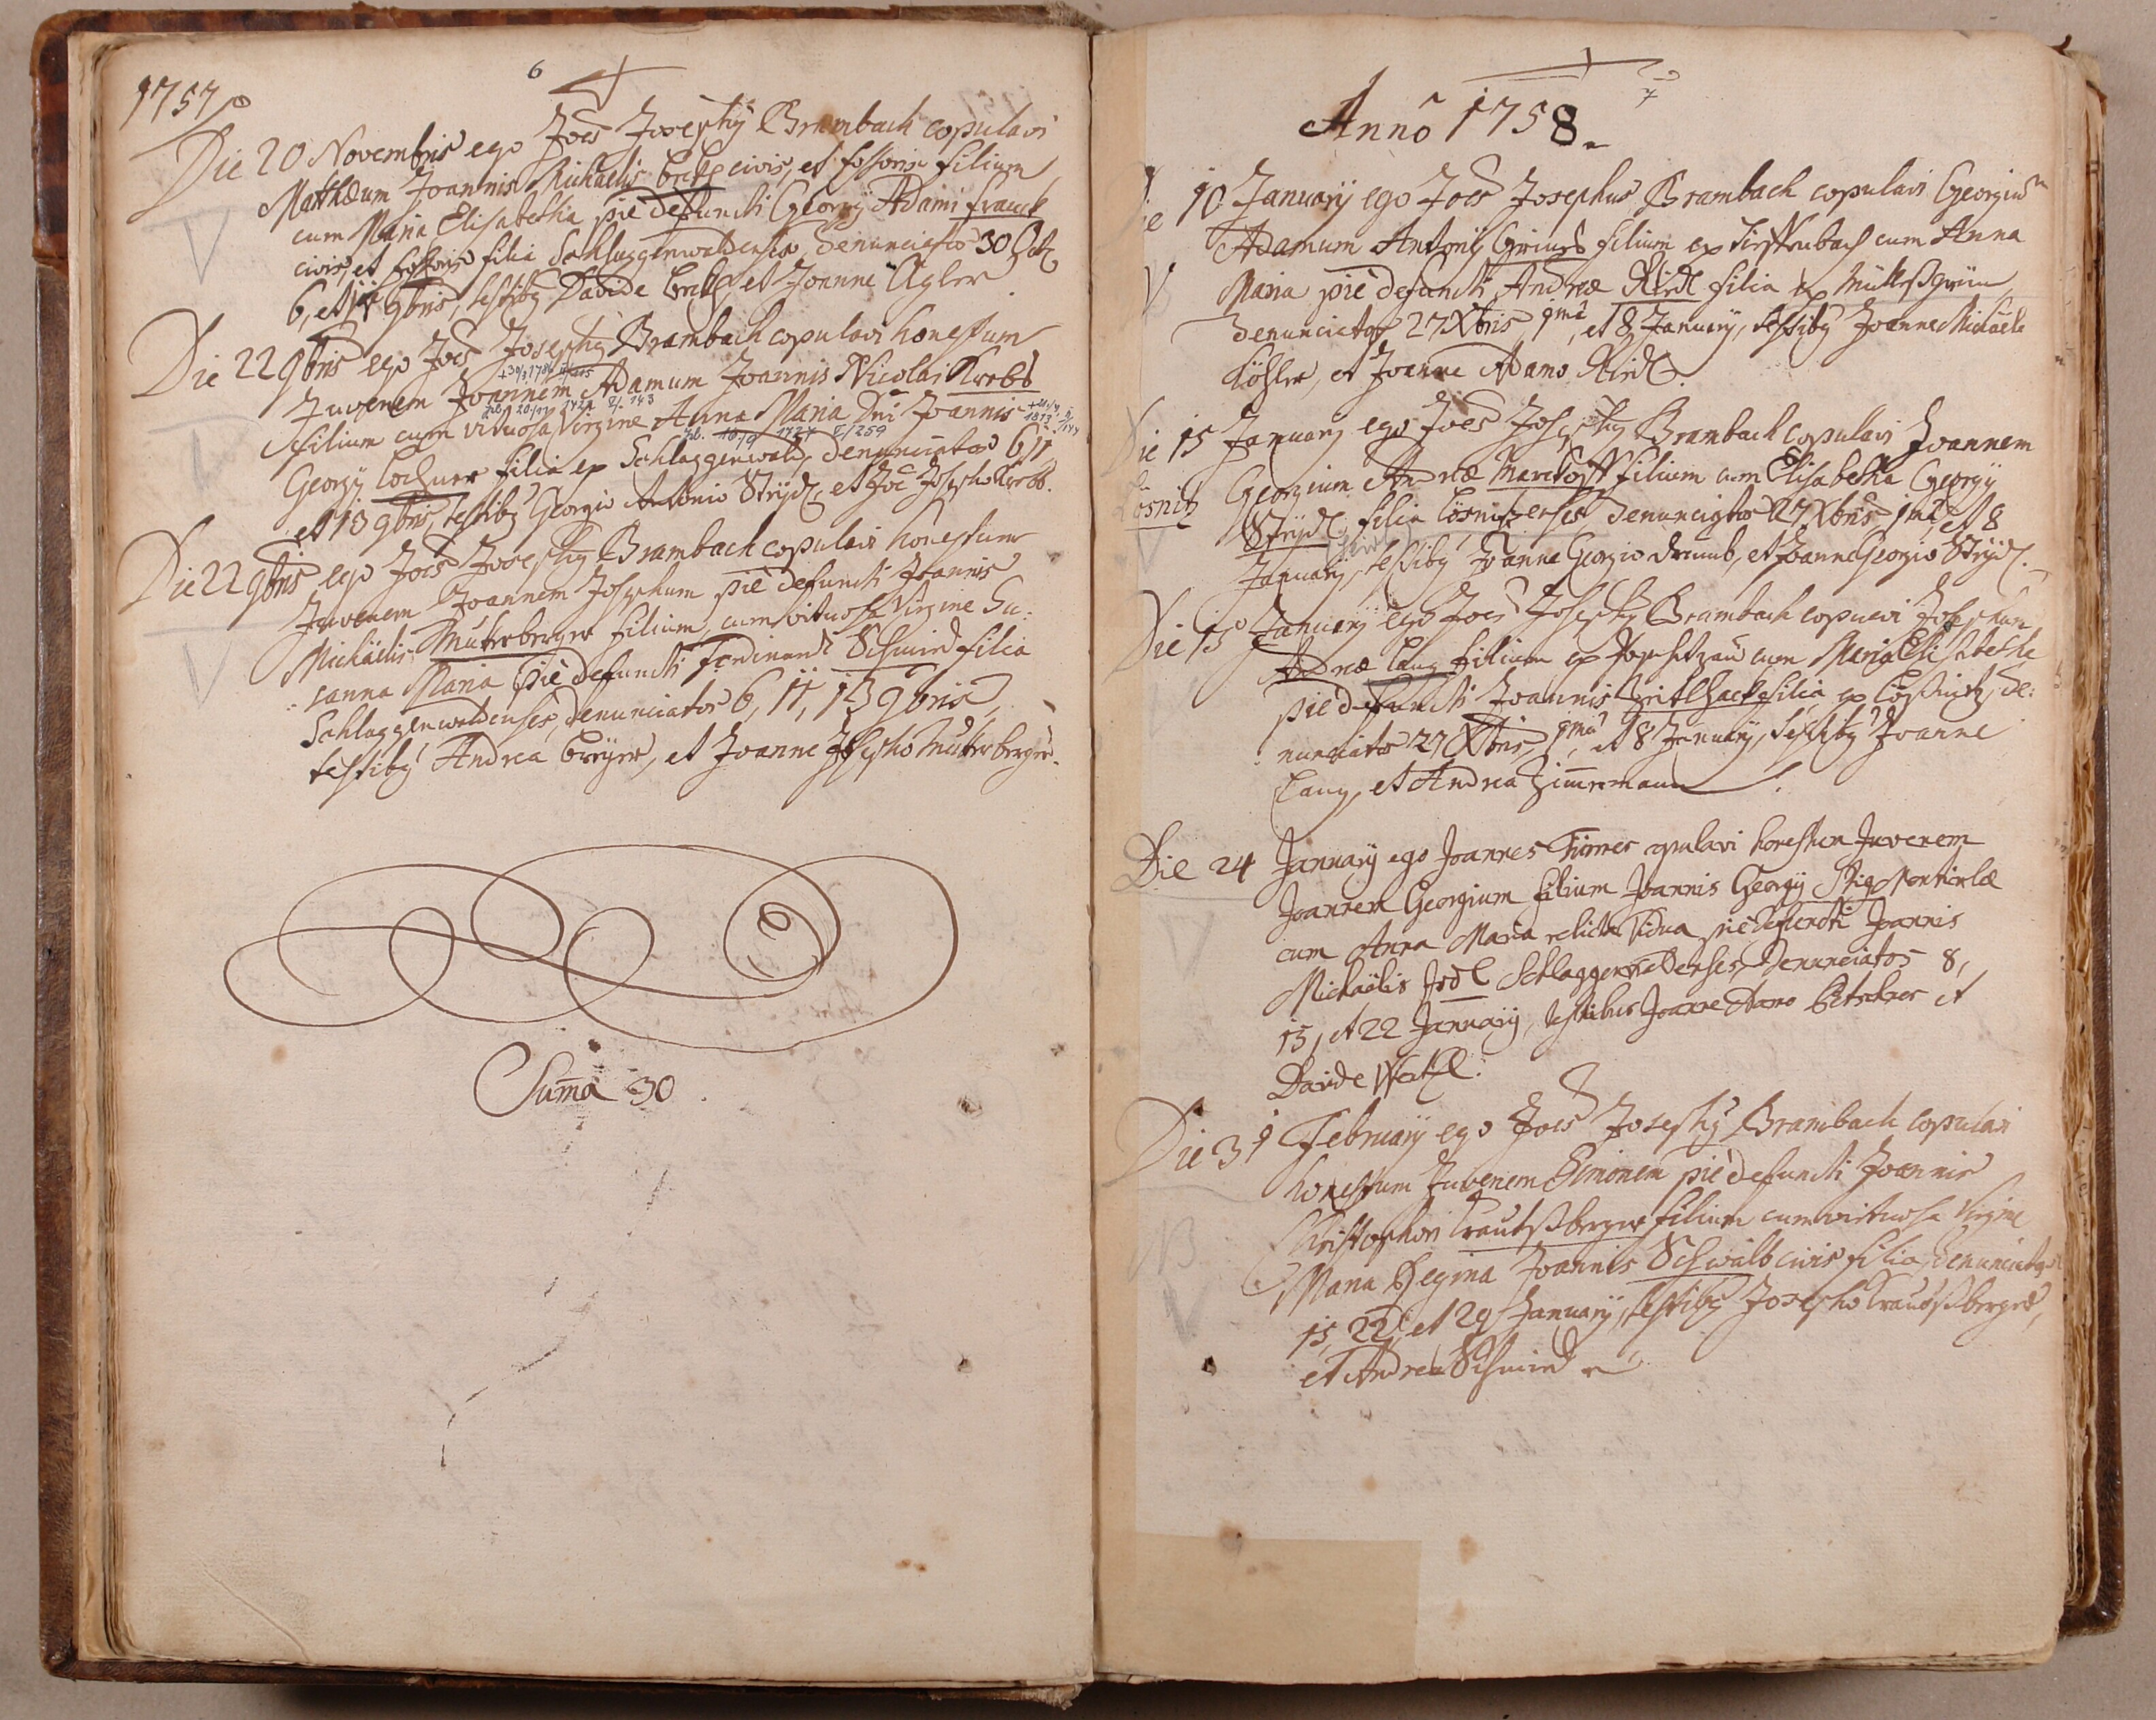 6
1757
Die 20 Novembris ego Joes Josephy Brambach copulavi
Matthæum Joannis Michaelis civis, et filium
cum Maria Elisabetha pie defuncti Georgÿ Adami Franck
civis, et filia Schlaggenwaldenses Denunciatos 30 Octb
6, et 9bris, testiby Davide et Joanne Agler
Die 22 9bris ego Joes Josephy Brambach copulavi honestum
Juvenem Joannem Adamum Joannis Nicolai Krobs
filium cum virtuosa Virgine Anna Maria Dni Joannis
Georgÿ Lochner filia ex Schlaggenwald, Denunciatos 6, 11,
et 13 9bris, testiby Georgio Antonio Strÿdl, et Joe Josepho Krobb.
Die 22 9bris ego Joes Josephy Brambach copulavi honestum
Juvenem Joannem Josephum pie defuncti Joannis
Michäelis Mutterberger filium, cum virtuosa Virgine Su:
sanna Maria pie defuncti Ferdinand Schmid filia
Schlaggenwaldenses, Denunciatos 6, 11, 13 9bris,
testiby Andrea Creÿer, et Joanne Josepho Mutterberger.
Suma 30.
7
Anno 1758.
Die 10 Januarÿ ego Joes Josephus Brambach copulavi Georgium
Adamum Antonÿ filium ex cum Anna
Maria pie defuncti Andreæ Riedl filia ex
Denunciatos 27 Xbris 1ma, et 8 Januarÿ, testiby Joanne Michäele
Köhler, et Joanne Adamo Riedl.
Die 15 Januarÿ ego Joes Josephy Brambach copulavi Joannem
Lösnitz Georgium Andreæ filium cum Elisabetha Georgÿ
Strÿdl filia Lösnitzenses, Denunciatos 27 Xbris, 1ma, et 8
Januarÿ, testiby Joanne Georgio et Joanne Georgio Strÿdl.
Die 15 Januarÿ ego Joes Josephy Brambach copulavi Josephum
Andreæ Lang filium ex cum Maria Elisabetha
pie defuncti Joannis filia ex Lößnitz, De:
nunciatos 27 Xbris, 1ma, et 8 Januarÿ, testiby Joanne
Lang, et Andrea Zimermann.
Die 24 Januarÿ ego Joannes Türner copulavi honestum Juvenem
Joannem Georgium filium Joannis Georgÿ
cum Anna Maria relicta Vidua pie defuncti Joannis
Michäelis Schlaggenwaldenses, Denunciatos 8,
15, et 22 Januarÿ, testibus Joanne Adamo et
Davide
Die 31 Februarÿ ego Joes Josephy Brambach copulavi
honestum Juvenem Simonem pie defuncti Joannis
Christophori Trautßberger filium cum virtuosa Virgine
Maria Regina Joannis Schwalb civis filia, Denunciatos
15, 22, et 29 Januarÿ, testiby Josepho Trautßberger,
et Andrea Schmied